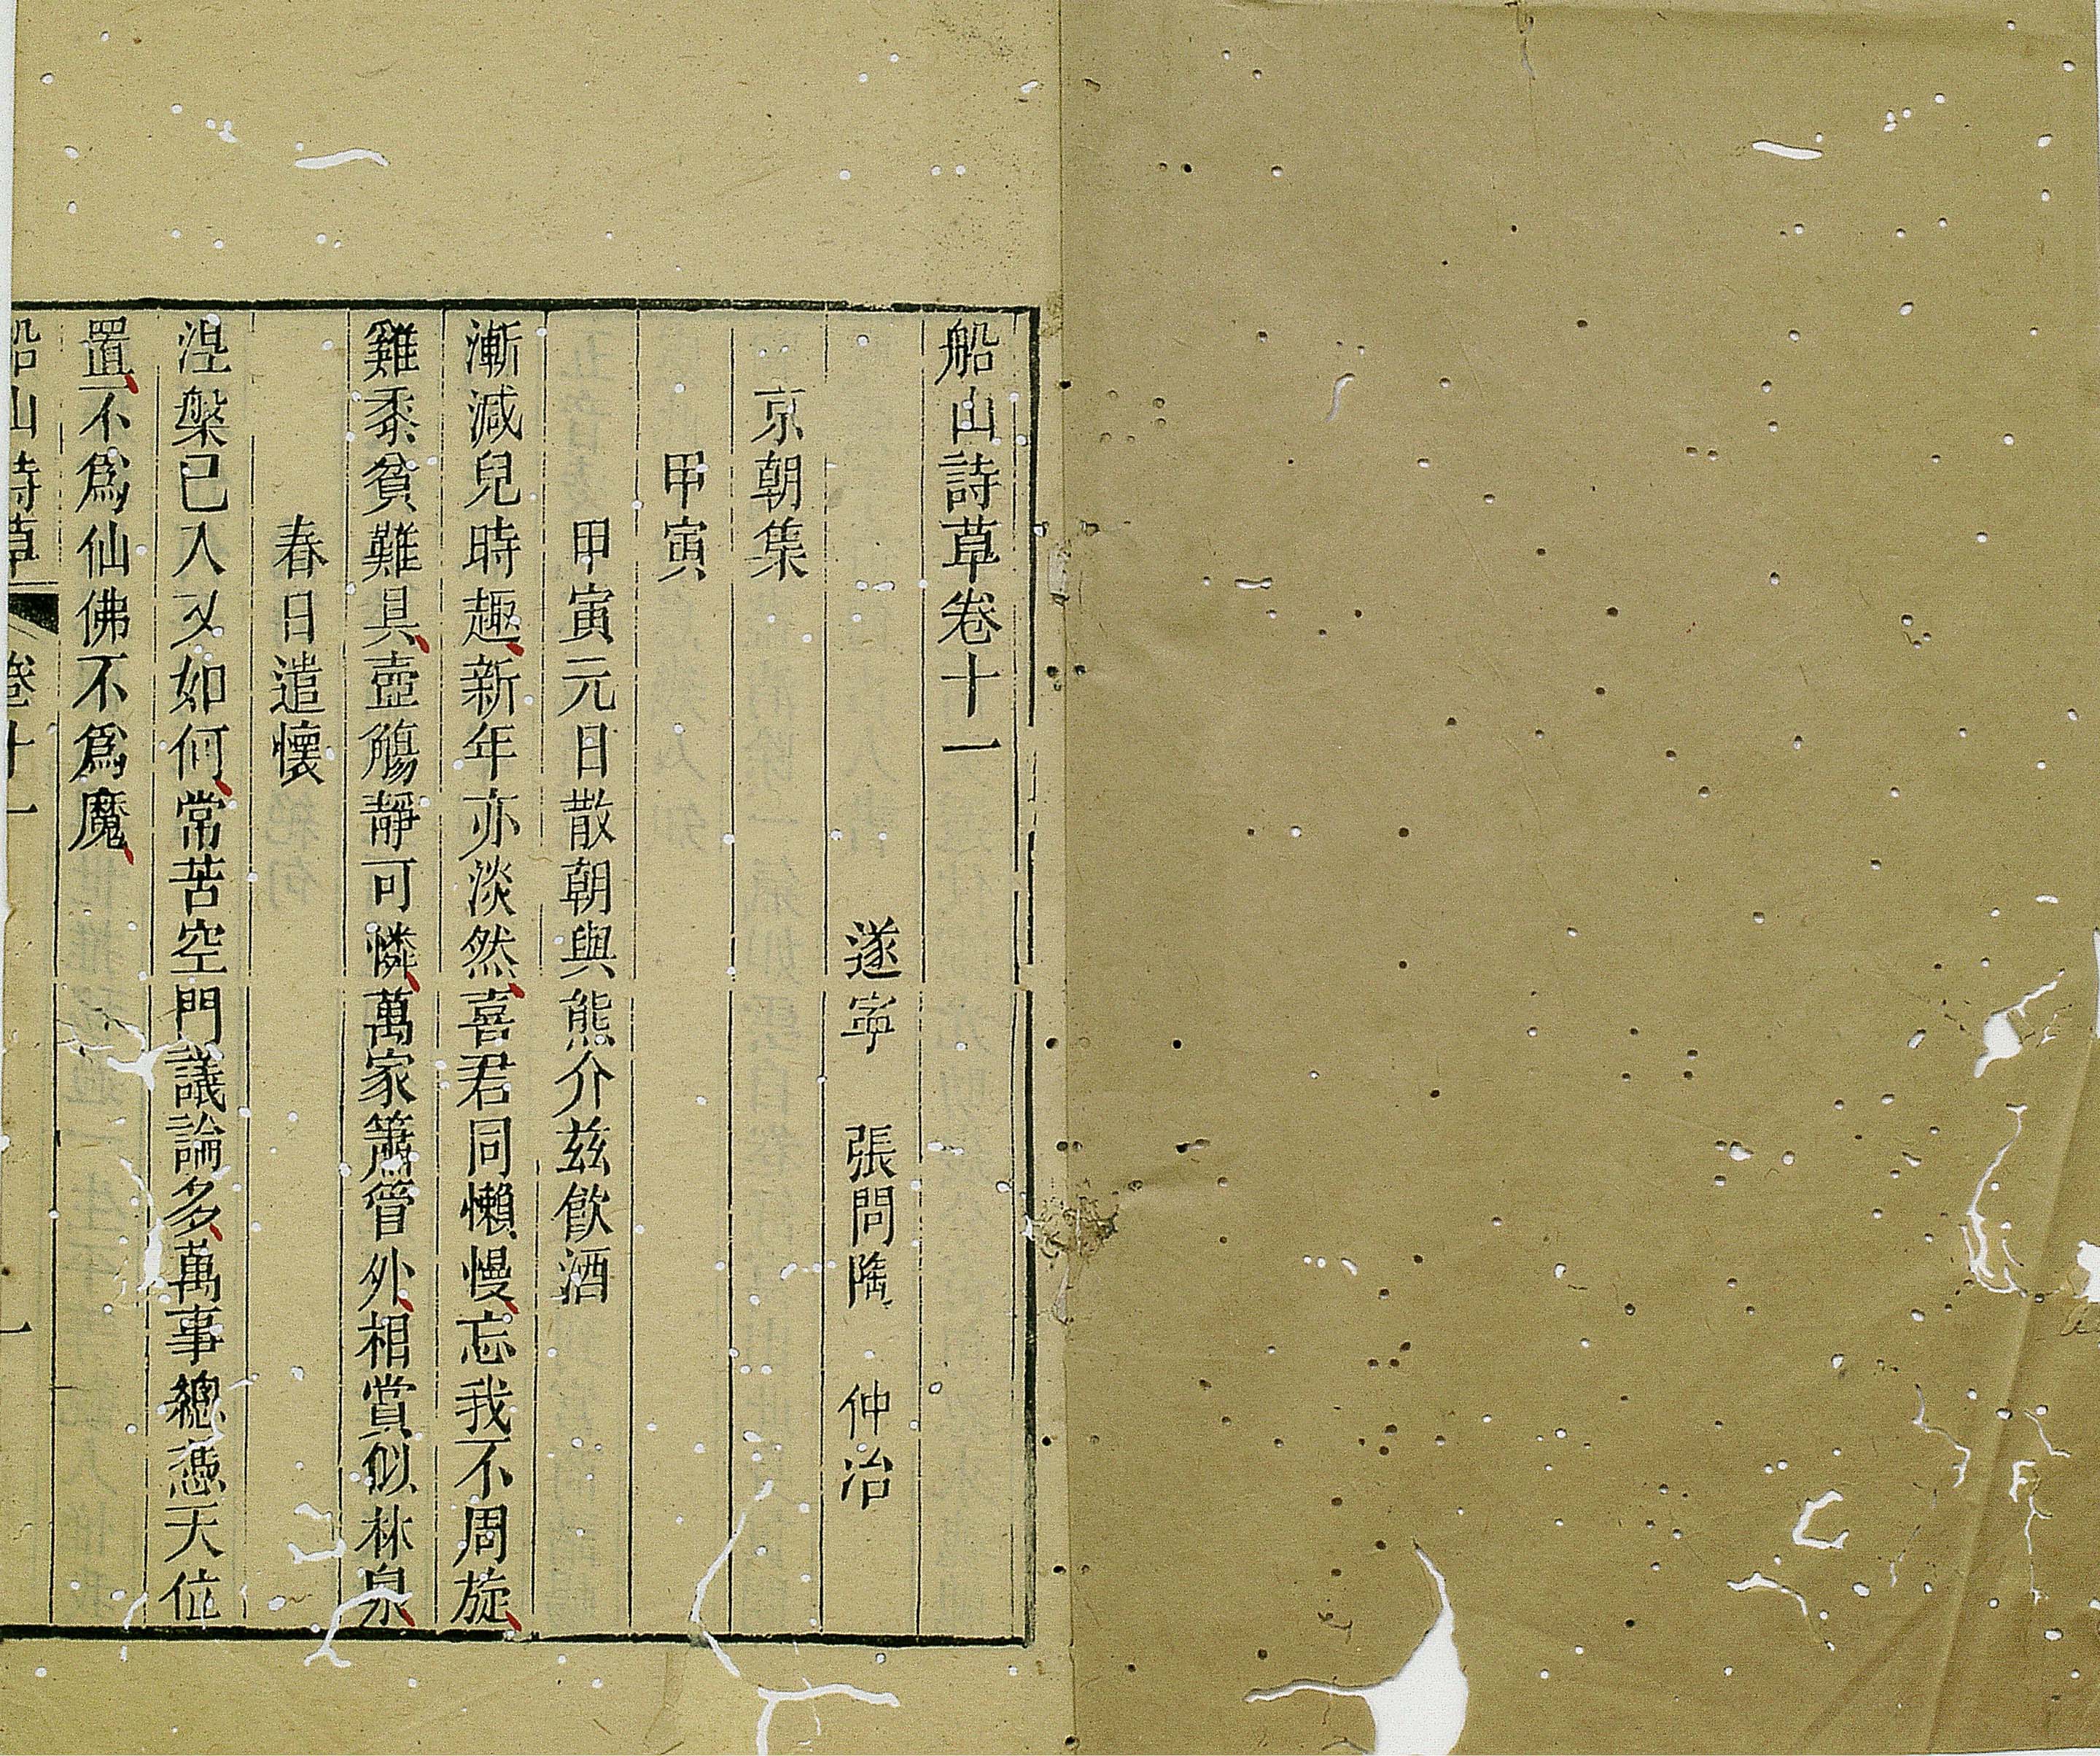 船山詩草卷十一
遂寧 張問陶 仲冶
京朝集
甲寅
甲寅元日散朝與熊介茲飲酒
漸減兒時趣新年亦淡然喜君同懶慢忘我不周旋
雞黍貧難具壺觴靜可憐萬家簫管外相賞似林泉
春日遣懷
涅槃已入又如何常苦空門議論多萬事總憑天位
置不爲仙佛不爲魔
船山詩草 卷十一 一